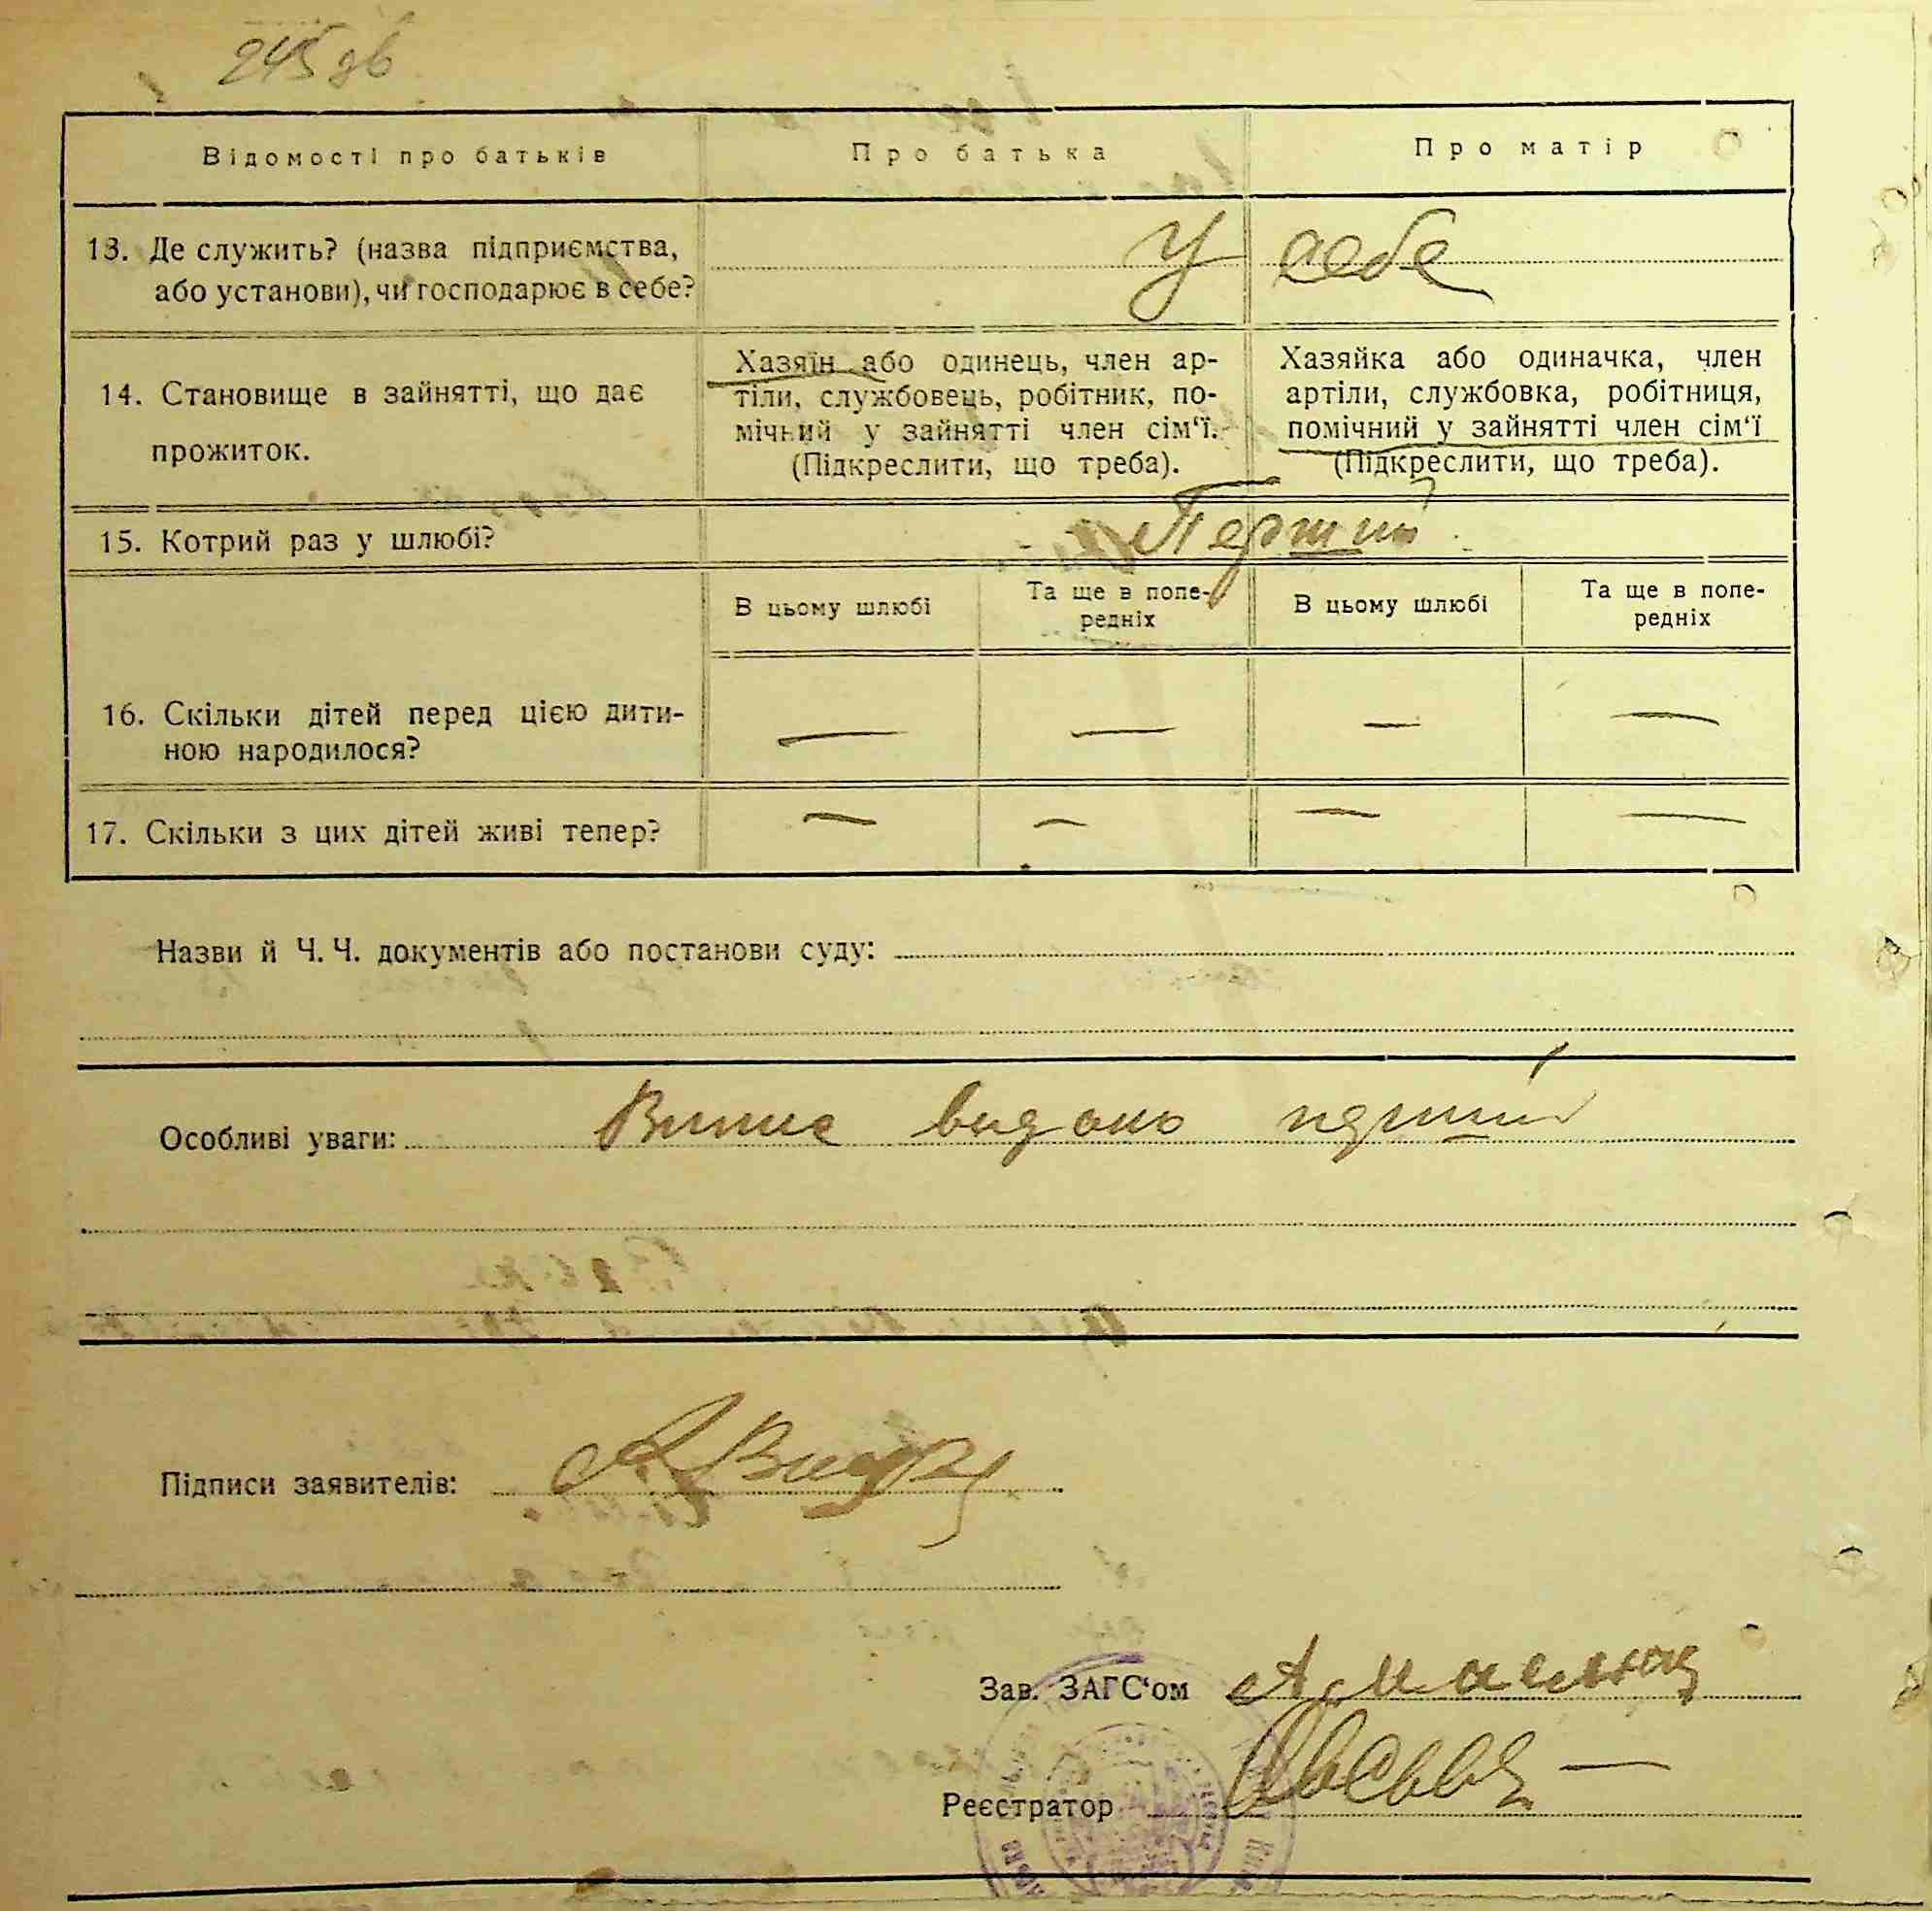 245 зв
Відомості про батьків
Про батька
Про матір
13. Де служить? (назва підприємства,
або установи), чи господарює в себе?
У себе
14. Становище в зайнятті, що дає
прожиток.
Хазяїн або одинець, член ар-
тіли, службовець, робітник, по-
мічний у зайнятті член сім‘ї.
(Підкреслити, що треба).
Хазяйка або одиначка, член
артіли, службовка, робітниця,
помічний у зайнятті член сім‘ї
(Підкреслити, що треба).
15. Котрий раз у шлюбі?
Перший
В цьому шлюбі
Та ще в попе-
редніх
В цьому шлюбі
Та ще в попе-
редніх
16. Скільки дітей перед цією дити-
ною народилося?
— — — —
17. Скільки з цих дітей живі тепер?
— — — —
Назви й Ч. Ч. документів або постанови суду:
Особливі уваги: Випис видано
Підписи заявителів:
Зав. ЗАГС‘ом
Реєстратор